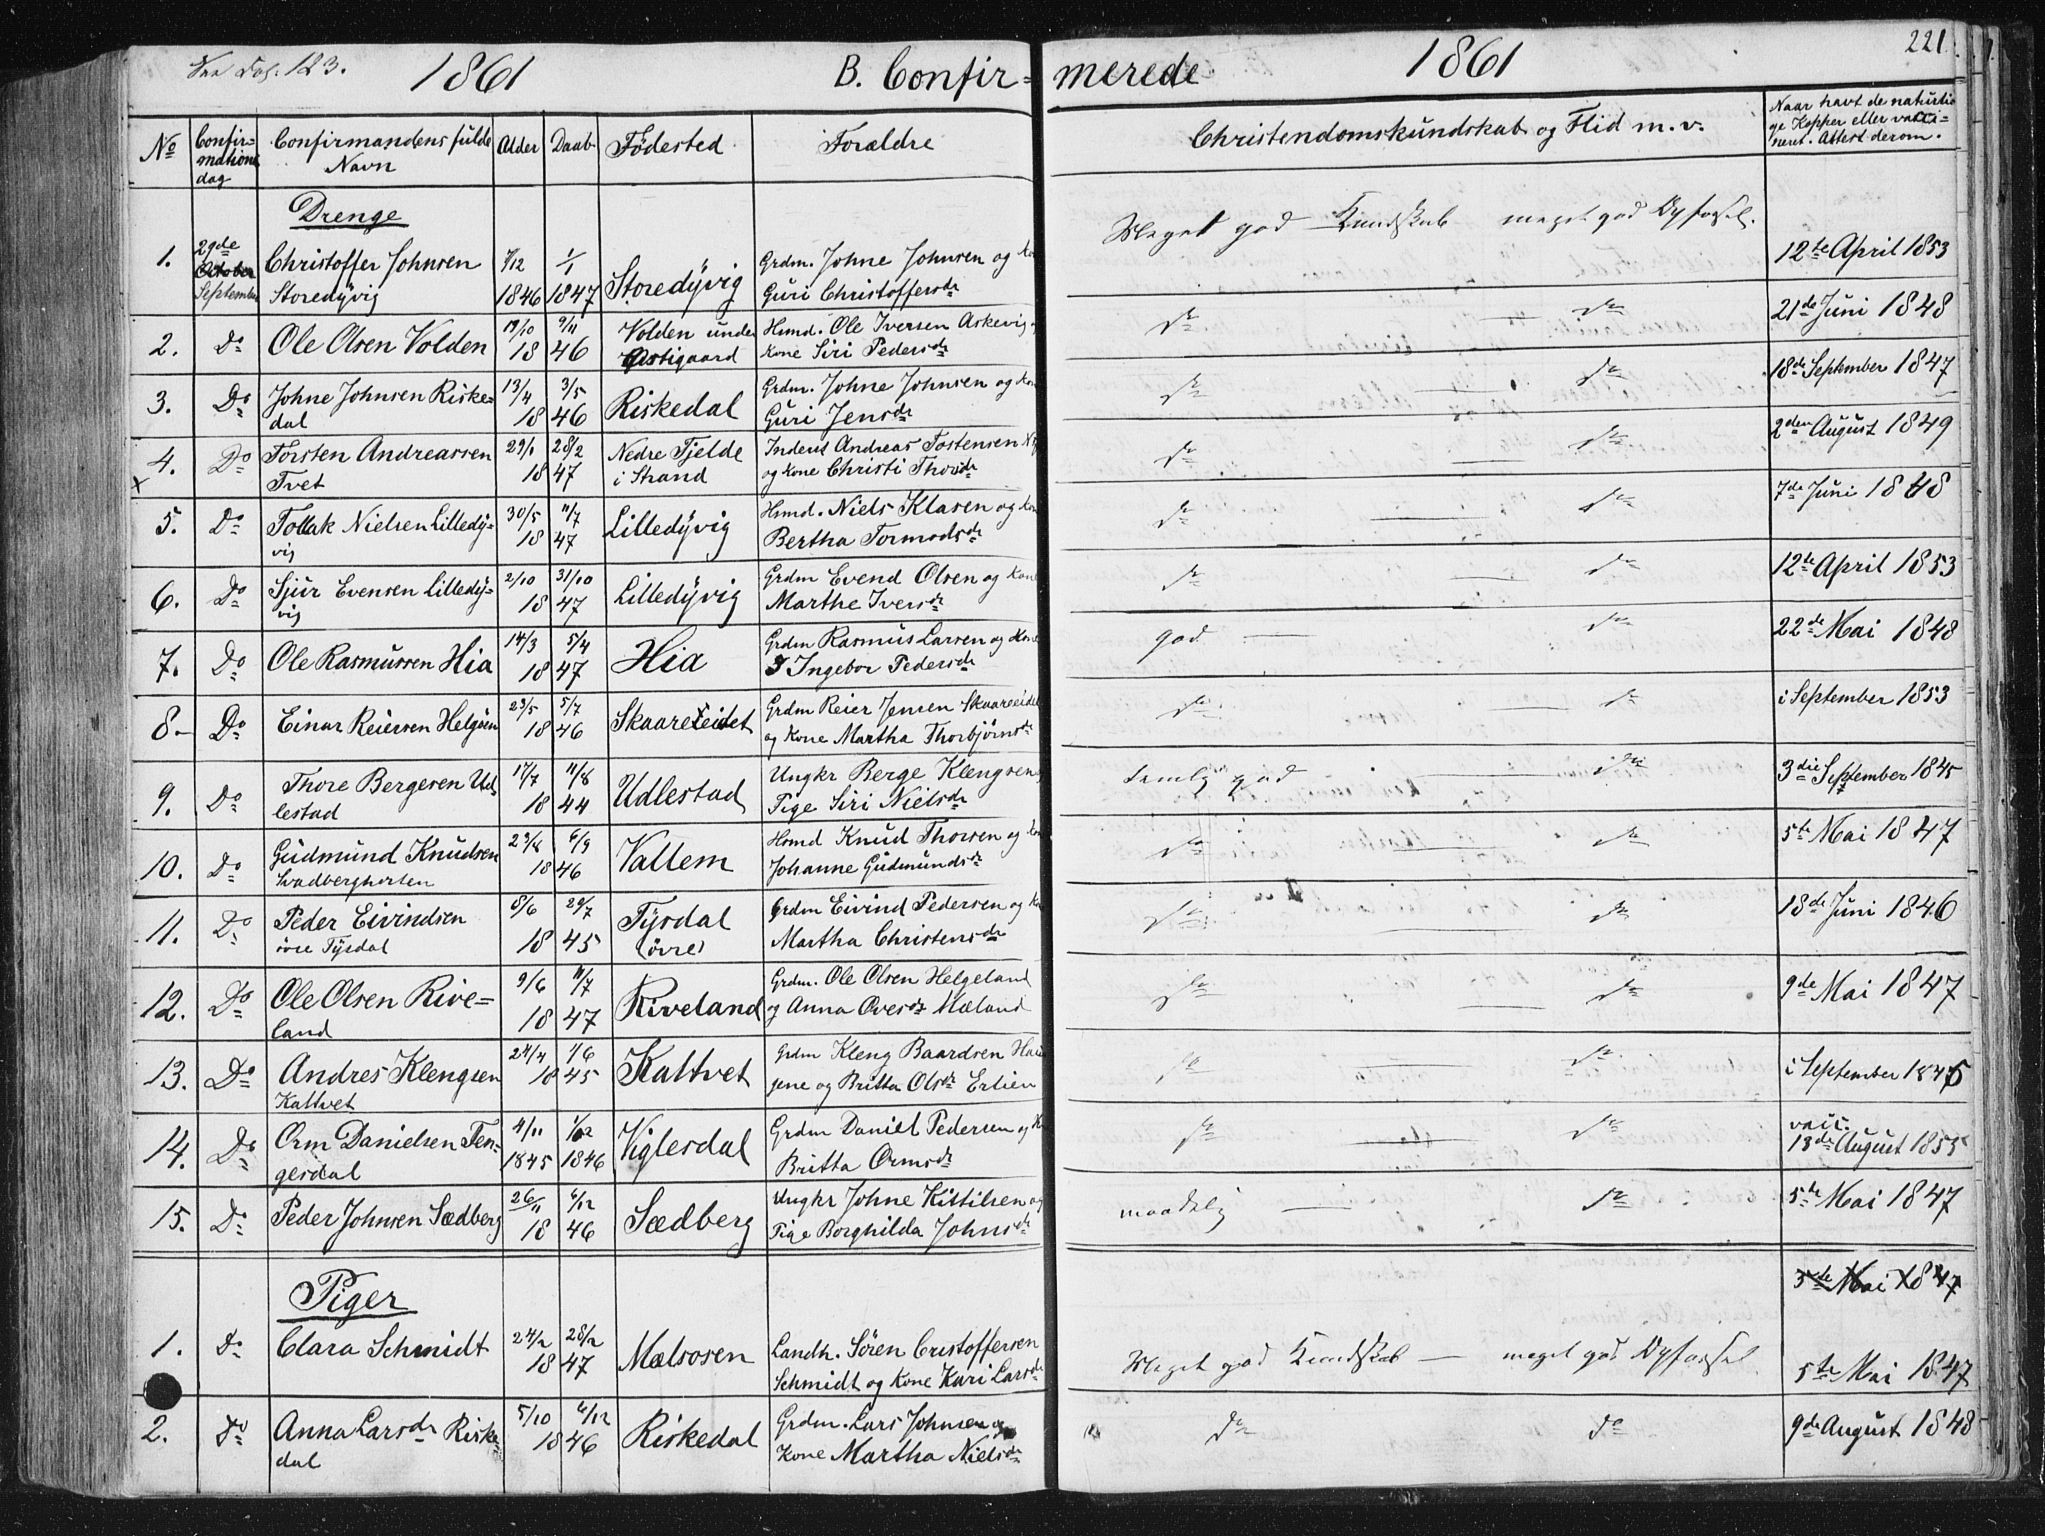 221
1861 B. Confirmerede 1861
No Confirmations dag Confirmandens fulde Navn Alder Daab Födested Forældre Christendomskundskab og Flid m.v. Naar havt de naturlige Kopper eller vaccineret. Attest derom.
Drenge
1. 29de September Christoffer Johnsen Storedÿvig 7/12 1846 1/1 1847 Storedÿvig Grdm. Johne Johnsen og Guri Christoffersdr Meget god Kundskab meget god Opførsel. 12te April 1853
2. Do Ole Olsen Volden 18 46 9/11 Volden under Hsmd. Ole Iversen Askevig Kone Siri Pedersdr do do 21de Juni 1848
3. Do Johne Johnsen Riskedal 13/4 3/5 18 46 Riskedal Grdm. Johne Johnsen og Guri Jensdr do do 18de September 1847
4. Do Torsten Andreassen Tvet 29/1 28/2 18 47 Nedre Fjelde i Strand Inderst Andreas Tostensen og Kone Christi do do 2den August 1849
5. Do Tollak Nielsen Lilledÿvig 30/5 11/7 18 47 Lilledÿvig Hsmd. Niels Klasen og Bertha Tormodsdr do do 7de Juni 1848
6. Do Sjur Evensen Lilledÿvig 2/10 31/10 18 47 Lilledÿvig Grdm Evend Olsen og Kone Marthe Iversdr do do 12te April 1853
7. Do Ole Rasmussen Hia 14/3 5/4 18 47 Hia Grdm Rasmus Larsen og Kone Ingebor Pedersdr god do 22de Mai 1848
8 Do Einar Reiersen Helgsen 23/5 5/7 18 46 Skaareeidet Grdm Reier Jensen Skaareeidet og Kone Martha Thorbjørnsdr do do i September 1853
9. Do Thore Bergesen Udlestad 17/7 11/8 18 44 Udlestad Ungkr Berge Klengsen Pige Siri Nielsdr temlig god do 3die September 1845
10. Do Gudmund Knudsen 23/8 6/9 18 46 Vallem Hsmd Knud Thorsen og Johanne Gudmundsdr do do 5te Mai 1847
11. Do Peder Eivindsen övre Tÿsdal 5/6 20/7 18 45 Tÿsdal (övre) Grdm Eivind Pedersen og Martha Christensdr do do 18de Juni 1846
12. Do Ole Olsen Riveland 9/6 11/7 18 47 Riveland Grdm. Ole Olsen Helgeland og Anna Oversdr Mæland do do 9de Mai 1847
13. Do Andres Klengsen Kattvet 24/4 1/6 18 45 Kattvet Grdm Kleng Baardsen og Britta Olsdr Ertien do do i September 1845
14. Do Orm Danielsen Tengesdal 4/11 1845 1846 Viglesdal Grdm Daniel Pedersen og Britta Ormsdr do do vacc. 13de August 1855
15. Do Peder Johnsen Sædberg 26/11 6/12 18 46 Sædberg Ungkr Johne Kittilsen og Pige Borghilda Johnsdr maadelig do 5te Mai 1847
5de Mai 1847
Piger
1. Do Clara Schmidt 24/2 28/2 18 47 Mælsosen Landh. Sören Cristoffersen Schmidt og Kone Kari Larsdr Meget god Kundskab meget god Opførsel 5te Mai 1847
2. Do Anna Larsdr Riskedal 5/10 6/12 18 46 Riskedal Grdm. Lars Johnsen og Kone Martha Nielsdr do do 9de August 1848